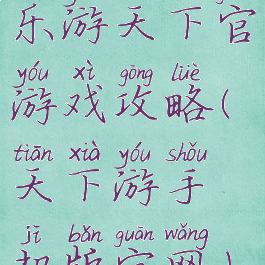 乐游天下官
yóu xì gōng lüè
游戏攻略(
tiān xià yóu shǒu
天下游手
jī bǎn guān wǎng
机版官网)